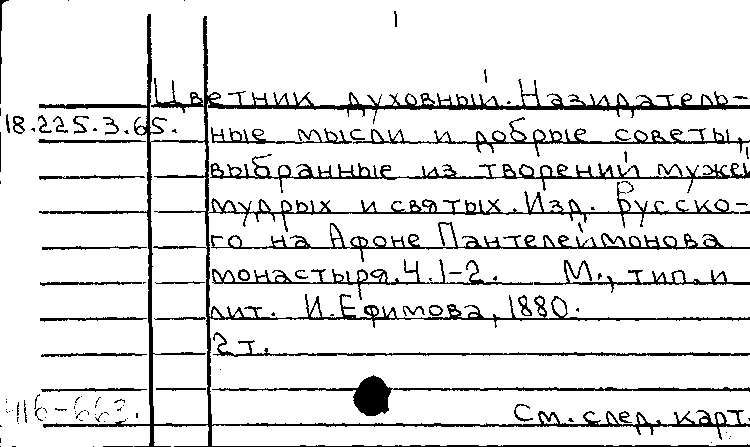 1
Цветник духовный. Назидатель-
18.225.3.65.
ные мысли и добрые советы,
выбранные из творений мужей
мудрых и святых. Изд. Русско-
го на Афоне Пантелеймонова
монастыря. Ч.1-2. М., тип. и
лит. И. Ефимова, 1880.
2 т.
416-663.
См. след. карт.